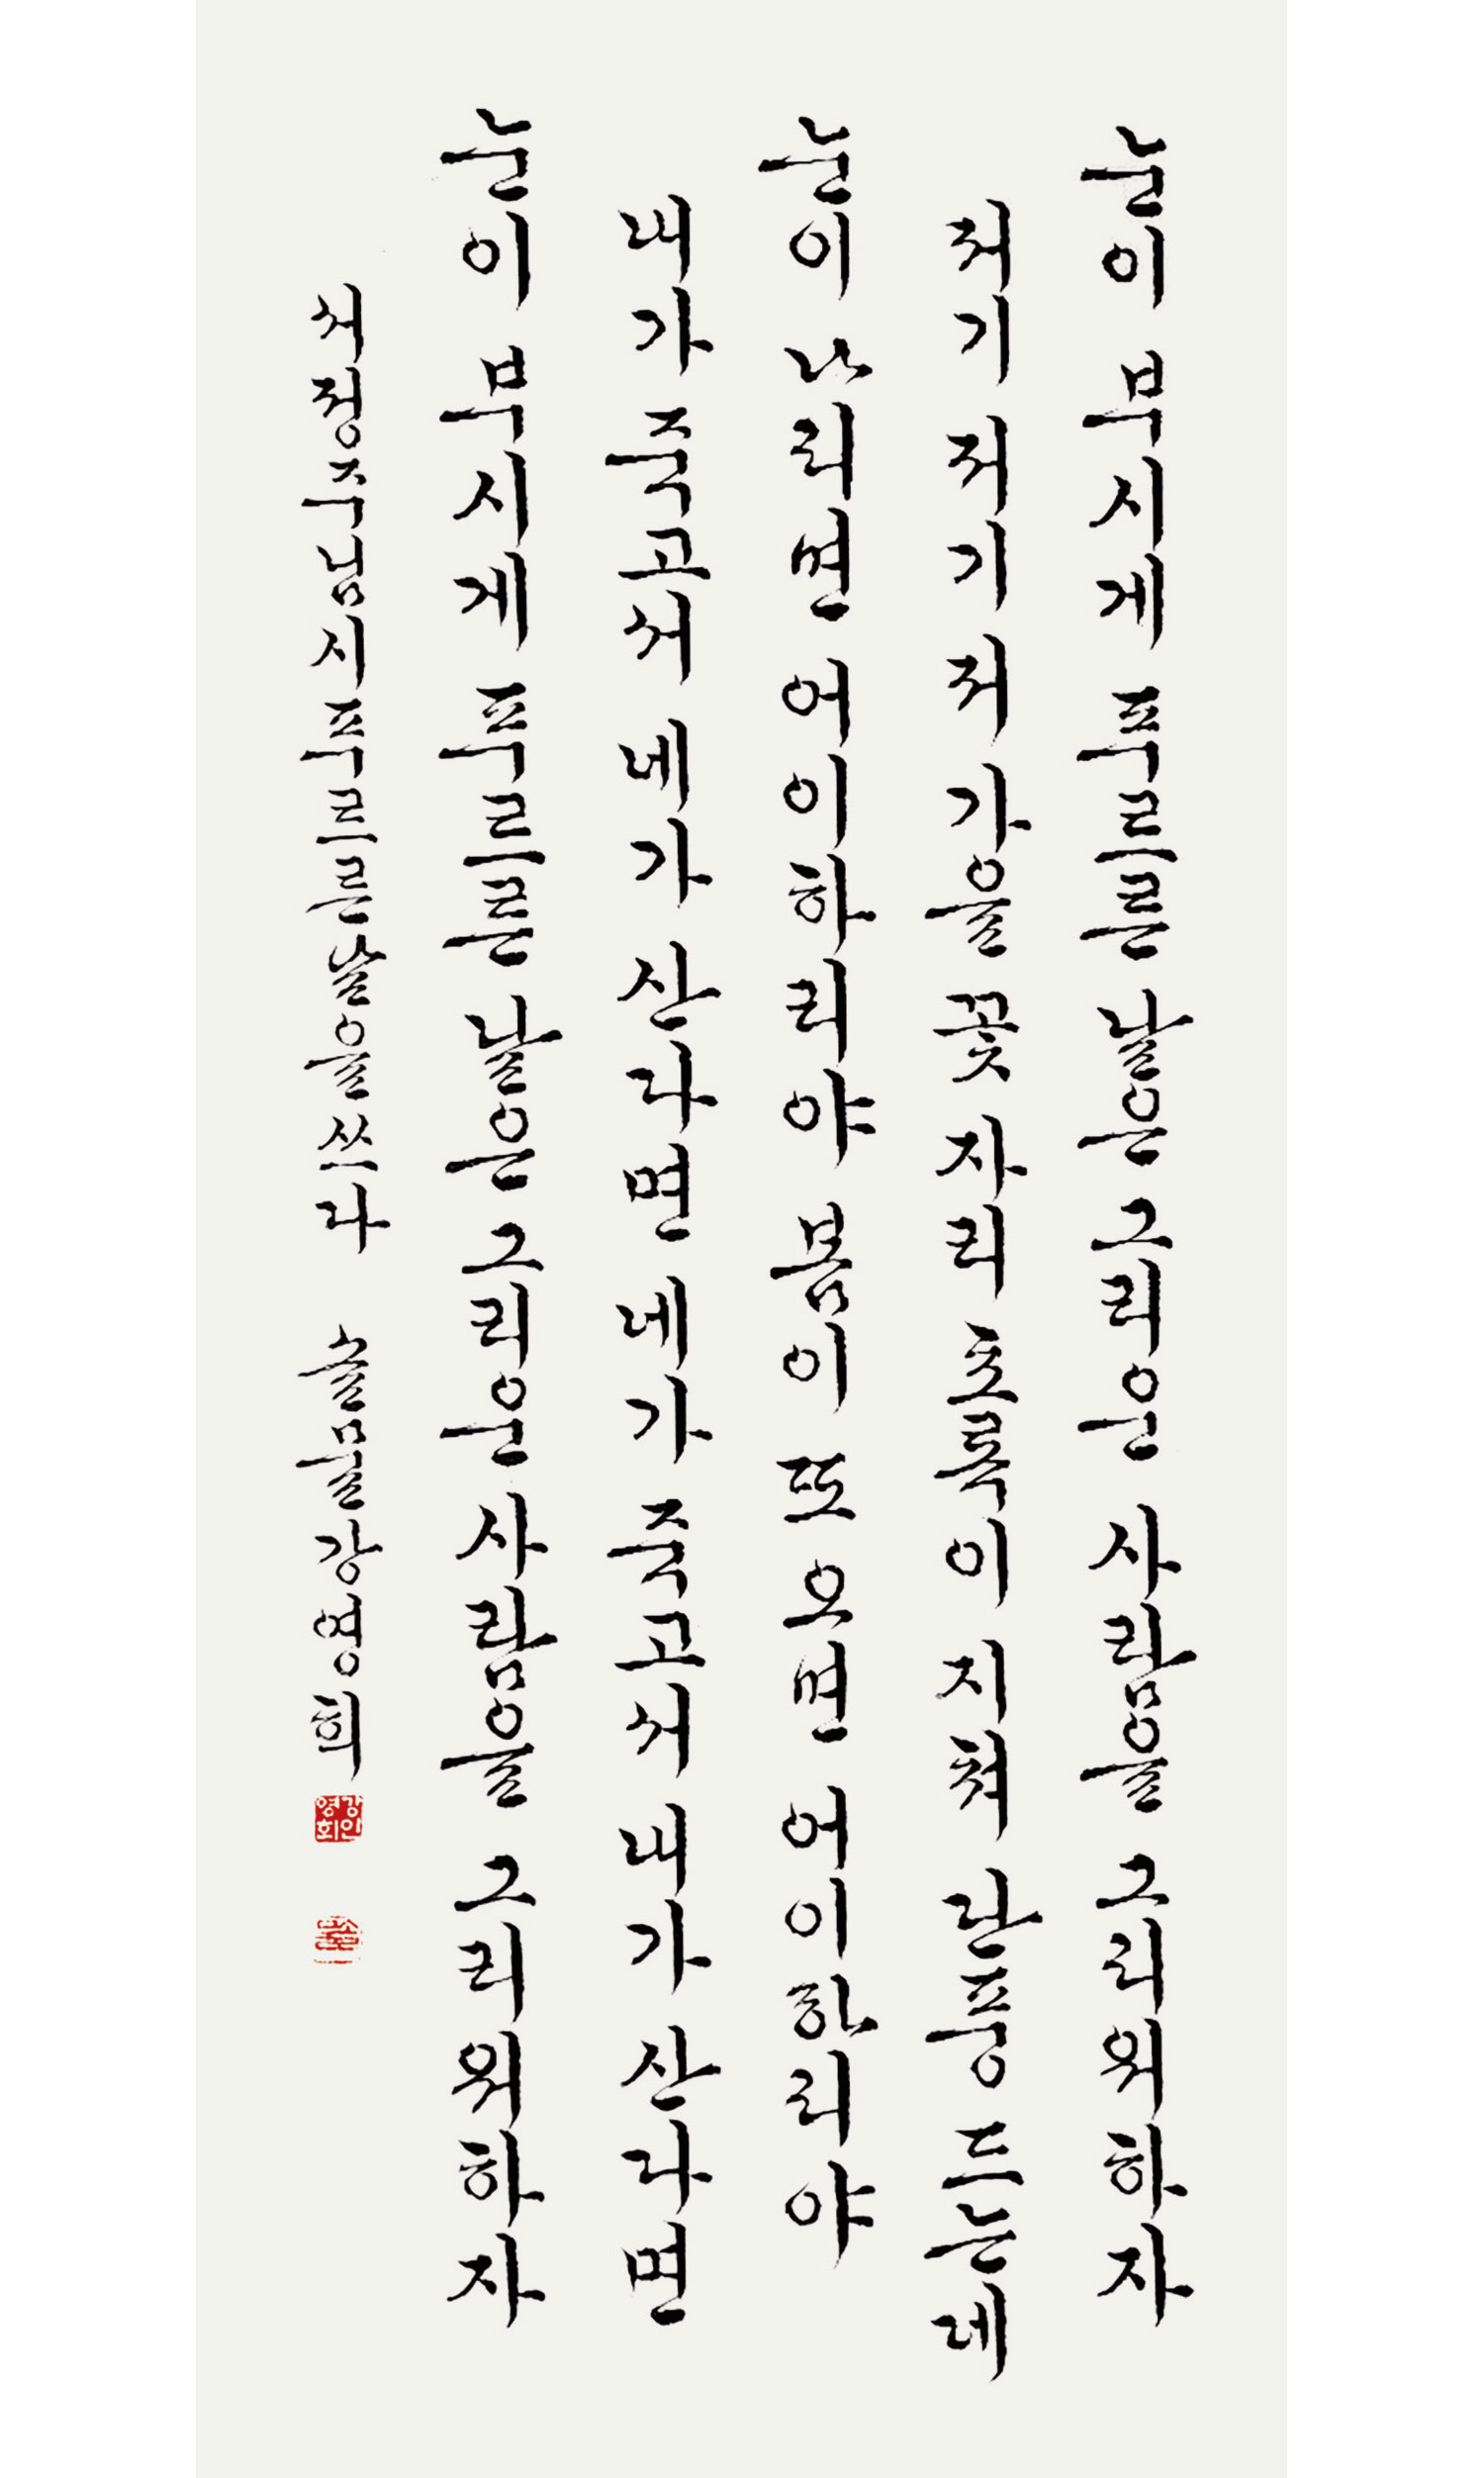 눈이 부시게 푸르른 날은 그리운 사람을 그리워하자
저기 저기 저 가을 꽃 자리 초록이 지쳐 단풍 드는데
눈이 나리면 어이하리야 봄이 또 오면 어이하리야
내가 죽고서 네가 산다면 네가 죽고서 내가 산다면
눈이 부시게 푸르른 날은 그리운 사람을 그리워하자
서정주님시푸르른날을쓰다 솔뫌강영희
강영희인